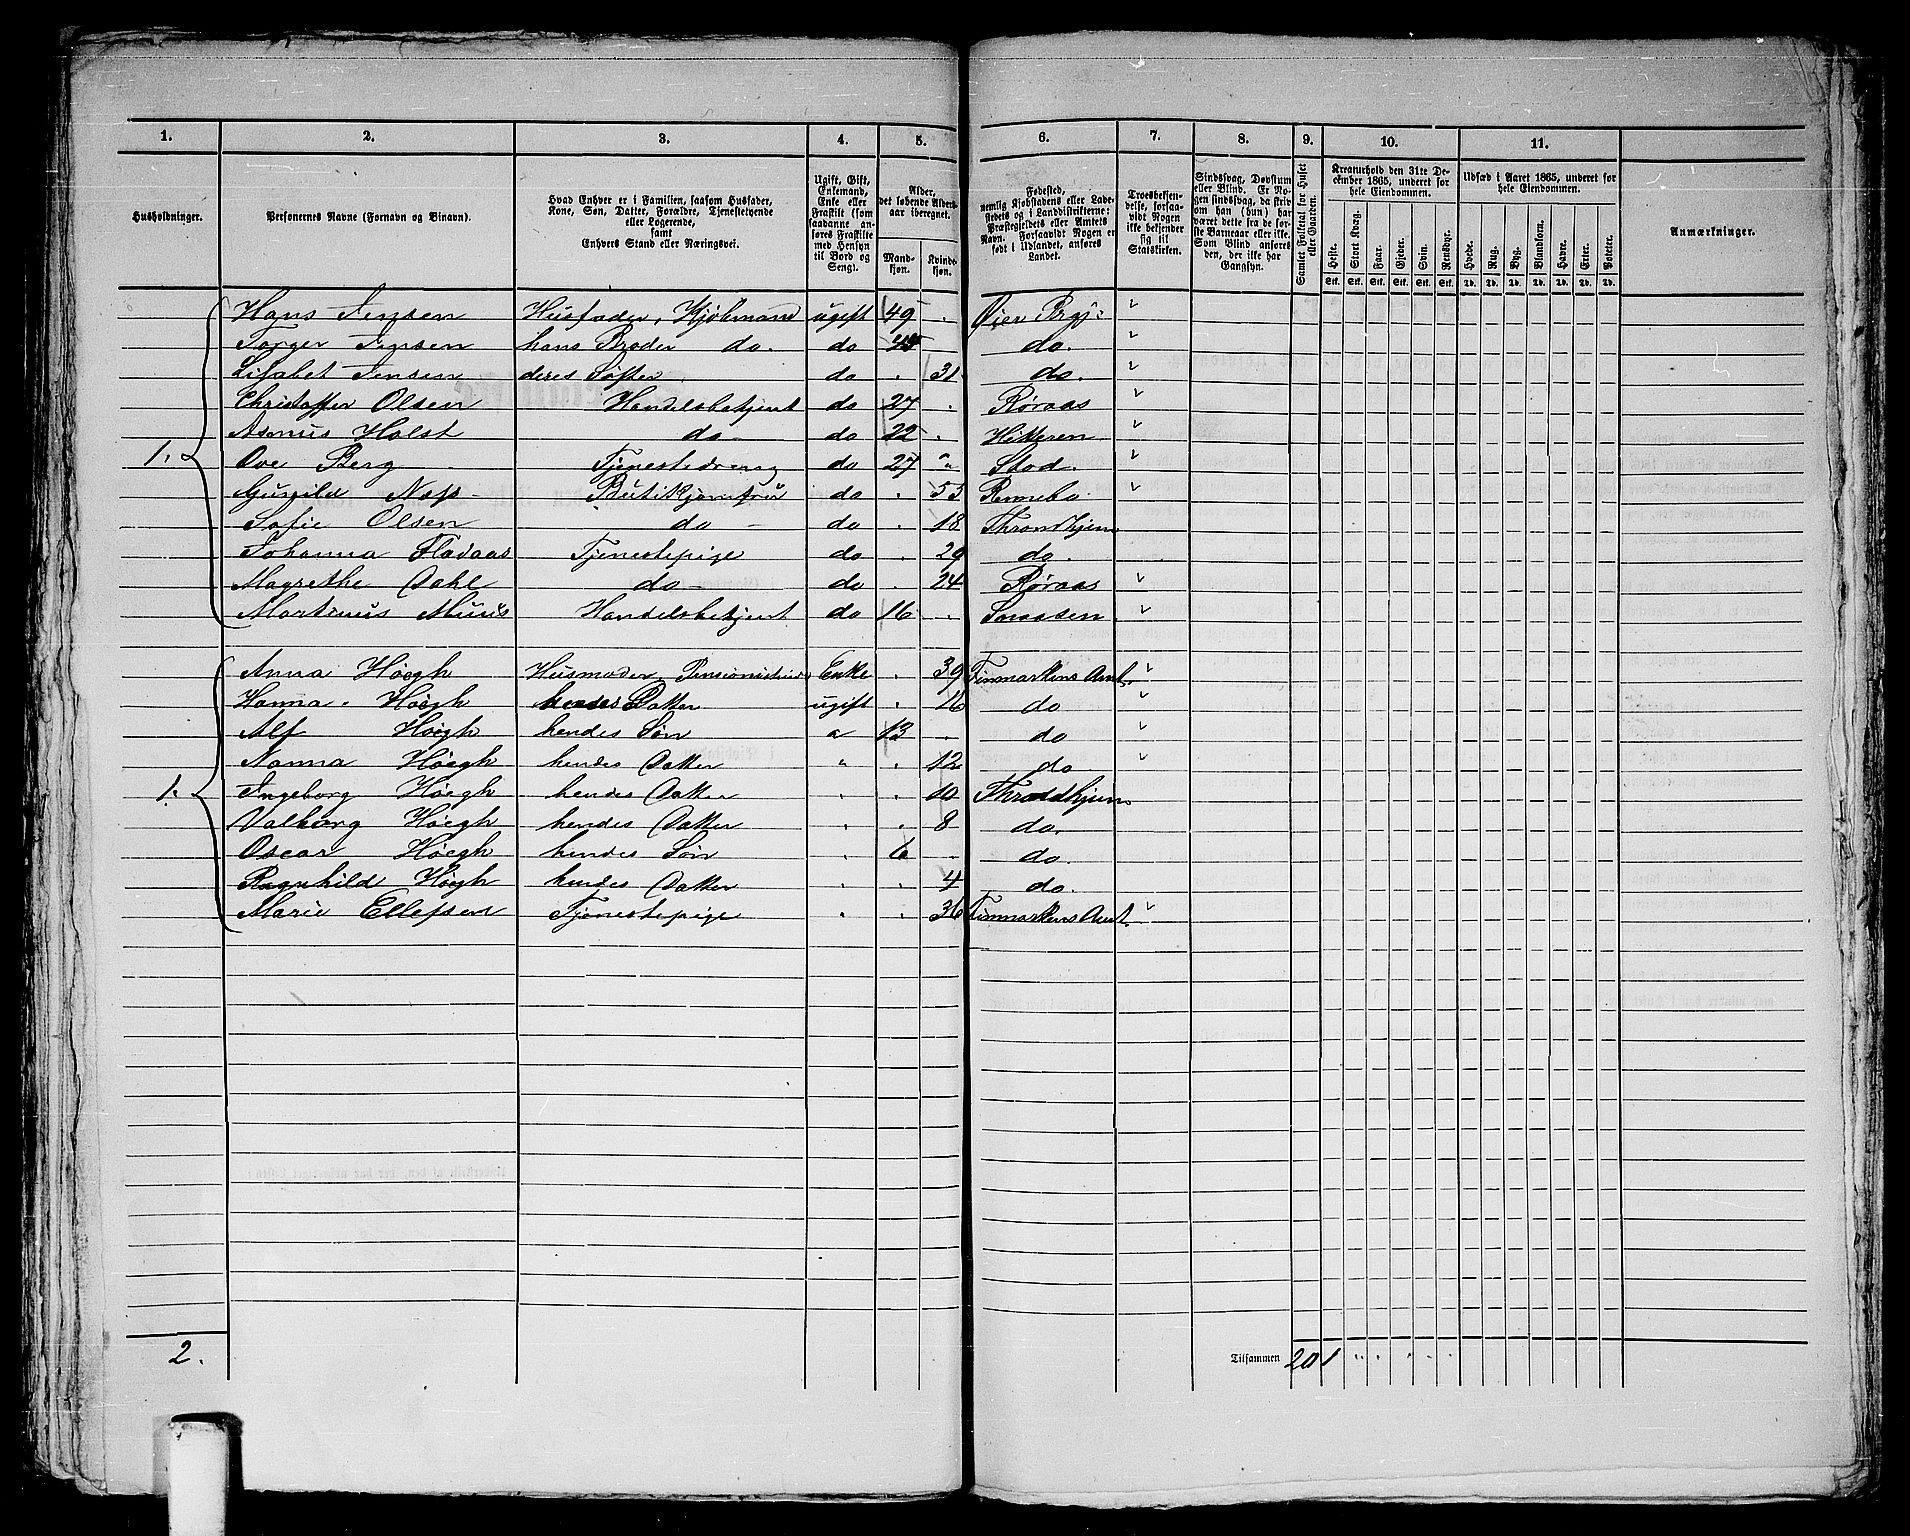 1. 2. 3. 4. 5. 6. 7. 8. 9. 10. 11.
Husholdninger.
Personernes Navne (Fornavn og Binavn).
Hvad Enhver er i Familien, saasom Husfader,
Kone, Søn, Datter, Forældre, Tjenestetyende
eller Logerende,
samt
Enhvers Stand eller Næringsvei.
Ugift, Gift,
Enkemand,
Enke eller
Fraskilt (som
saadanne an-
føres Fraskilte
med Hensyn
til Bord og
Seng).
Alder,
det løbende Alders-
aar iberegnet.
Mand-
kjøn.
Kvinde-
kjøn.
Fødested,
nemlig Kjøbstadens eller Lade-
stedets og i Landdistrikterne:
Præstegjeldets eller Amtets
Navn. Forsaavidt Nogen er
født i Udlandet, anføres
Landet.
Troesbekjen-
delse, forsaa-
vidt Nogen
ikke bekjender
sig til
Statskirken.
Sindssvag, Døvstum
eller Blind. Er No-
gen sindssvag, da skriv
om han (hun) har
været dette fra de før-
ste Barneaar eller ikke.
Som Blind anføres
den, der ikke har
Gangsyn.
Samlet Folketal for Huset
eller Gaarden.
Kreaturhold den 31te De-
cember 1865, underet for
hele Eiendommen.
Heste. Stort Kvæg. Faar. Gjeder. Svin. Rensdyr.
Stk. Stk. Stk. Stk. Stk. Stk.
Udsæd i Aaret 1865, underet for
hele Eiendommen.
Hvede. Rug. Byg. Blandkorn. Havre. Erter. Poteter.
Td. Td. Td. Td. Td. Td. Td.
Anmærkninger.
Hans Jensen Husfader, Kjøbmand ugift 49 . Øier Prgj:
Torger Jensen hans Broder do. do . do.
Lisabet Jensen deres Søster do . 31 do.
Christoffer Olsen Handelsbetjent do 27 . Røraas
Asmus Holst do do 22 . Hitteren
1. Ove Berg Tjenestedreng do 27 " Stod.
Gunild Næss Butikjomfru do . 53 Rennebo
Sofie Olsen do do . 18 Throndhjem
Johanna Fladaas Tjenestepige do . 29 do.
Magrethe Dahl do do . 24 Røraas
Martinus Muus Handelsbetjent do 16 . Snaasen
Anna Höegh Husmoder, Pensionistinde Enke . 39 Finmarkens Amt.
Hanna Höegh hendes Datter ugift . 16 do
Alf Höegh hendes Søn " 13 . do
Nanna Höegh hendes Datter " . 12 do
1. Ingeborg Höegh hendes Datter " . 10 Throndhjem
Valborg Höegh hendes Datter " . 8 do.
Oscar Höegh hendes Søn " 6 . do.
Ragnhild Höegh hendes Datter " . 4 do.
Marie Ellefsen Tjenestepige " . 36 Finmarkens Amt.
2.
Tilsammen 20 1